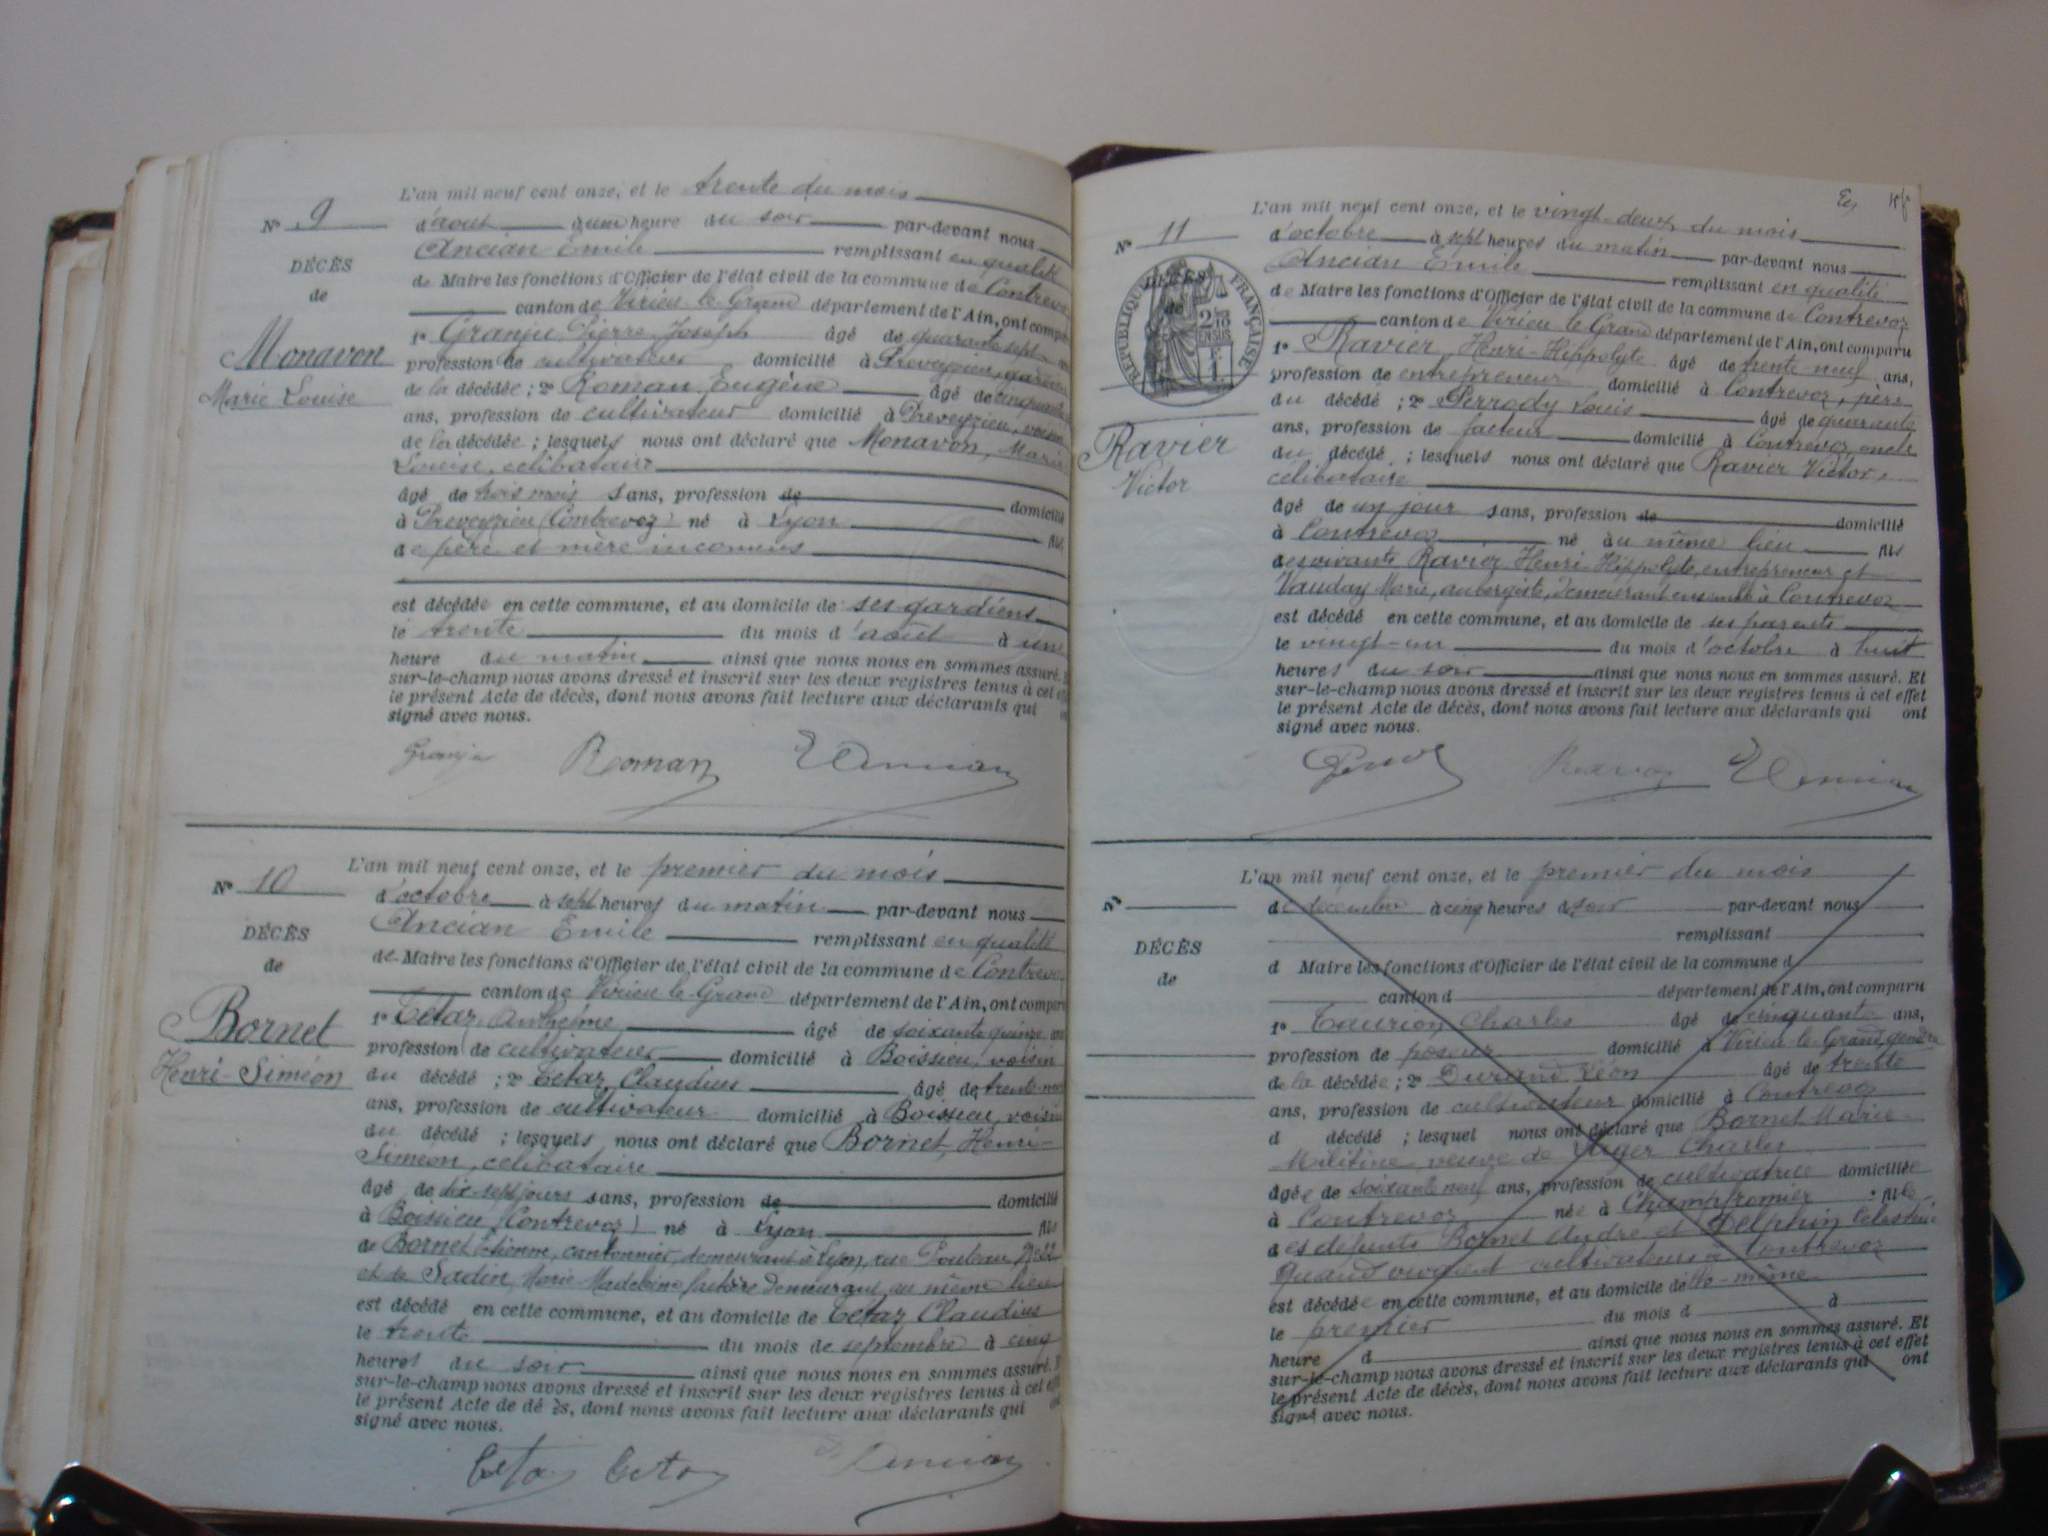 L'an mil neuf cent onze, et le trente du mois
N° 9
d'août à une heure du soir par-devant nous
Ancian Emile remplissant en qualité
DÉCÈS
de Maire les fonctions d'Officier de l'état civil de la commune de Contrevoz
de
canton de Virieu-le-Grand département de l'Ain, ont comparu
1° Granju Pierre Joseph âgé de quarante sept
Monavon
profession de cultivateur domicilié à Preveyzieu, gardien
Marie Louise
de la décédée ; 2° Roman Eugène âgé de cinquante
ans, profession de cultivateur domicilié à Preveyzieu, voisin
de la décédée ; lesquels nous ont déclaré que Monavon, Marie
Louise, célibataire
âgé de trois mois sans, profession de domicilié
à Preveyzieu (Contrevoz) né à Lyon fils
de père et mère inconnus
est décédée en cette commune, et au domicile de ses gardiens
le trente du mois d'août à une
heure du matin ainsi que nous nous en sommes assuré. Et
sur-le-champ nous avons dressé et inscrit sur les deux registres tenus à cet effet
le présent Acte de décès, dont nous avons fait lecture aux déclarants qui ont
signé avec nous.
Granju Roman E Ancian
L'an mil neuf cent onze, et le premier du mois
N° 10
d'octobre à sept heures du matin par-devant nous
Ancian Emile remplissant en qualité
DÉCÈS
de Maire les fonctions d'Officier de l'état civil de la commune de Contrevoz
de
canton de Virieu-le-Grand département de l'Ain, ont comparu
1° Tétaz Anthelme âgé de soixante quinze ans
Bornet
profession de cultivateur domicilié à Boissieu, voisin
Henri-Siméon
du décédé ; 2° Tétaz Claudius âgé de trente-neuf
ans, profession de cultivateur domicilié à Boissieu, voisin
du décédé ; lesquels nous ont déclaré que Bornet, Henri-
Siméon, célibataire
âgé de dix-sept jours sans, profession de domicilié
à Boissieu (Contrevoz) né à Lyon fils
de Bornet Etienne, cantonnier, demeurant à Lyon, rue Pouteau, N° 22
et de Sadin, Marie-Madeleine demeurant au même lieu
est décédé en cette commune, et au domicile de Tétaz Claudius
le trente du mois de septembre à cinq
heures du soir ainsi que nous nous en sommes assuré. Et
sur-le-champ nous avons dressé et inscrit sur les deux registres tenus à cet effet
le présent Acte de décès, dont nous avons fait lecture aux déclarants qui ont
signé avec nous.
Tétaz Tétaz E Ancian
L'an mil neuf cent onze, et le vingt-deux du mois
N° 11
d'octobre à sept heures du matin par-devant nous
Ancian Emile remplissant en qualité
DÉCÈS
de Maire les fonctions d'Officier de l'état civil de la commune de Contrevoz
de
RÉPUBLIQUE FRANÇAISE
canton de Virieu-le-Grand département de l'Ain, ont comparu
1° Ravier, Henri-Hippolyte âgé de trente-neuf ans,
profession de entrepreneur domicilié à Contrevoz, père
du décédé ; 2° Perrody Louis âgé de quarante
Ravier
ans, profession de facteur domicilié à Contrevoz, oncle
Victor
du décédé ; lesquels nous ont déclaré que Ravier Victor,
célibataire
âgé de un jour sans, profession de domicilié
à Contrevoz né au même lieu fils
des vivants Ravier Henri-Hippolyte, entrepreneur et
Vauday Marie, aubergiste, demeurant ensemble à Contrevoz
est décédé en cette commune, et au domicile de ses parents
le vingt-un du mois d'octobre à huit
heures du soir ainsi que nous nous en sommes assuré. Et
sur-le-champ nous avons dressé et inscrit sur les deux registres tenus à cet effet
le présent Acte de décès, dont nous avons fait lecture aux déclarants qui ont
signé avec nous.
Ravier E Ancian
L'an mil neuf cent onze, et le premier du mois
N°
de décembre à cinq heures du soir par-devant nous
remplissant
DÉCÈS
d Maire les fonctions d'Officier de l'état civil de la commune d
de
canton d département de l'Ain, ont comparu
1° Charles âgé de cinquante ans,
profession de poseur domicilié à Virieu-le-Grand, gendre
de la décédée ; 2° Durand Léon âgé de trente
ans, profession de cultivateur domicilié à Contrevoz
d décédé ; lesquel nous ont déclaré que Bornet Marie
Mélitine, veuve de Charles
âgée de soixante neuf ans, profession de cultivatrice domiciliée
à Contrevoz née à Champfromier fille
des défunts Bornet André et Delphin Célestine
quand vivaient cultivateurs à Contrevoz
est décédée en cette commune, et au domicile de elle-même
le premier du mois d à
heure d ainsi que nous nous en sommes assuré. Et
sur-le-champ nous avons dressé et inscrit sur les deux registres tenus à cet effet
le présent Acte de décès, dont nous avons fait lecture aux déclarants qui ont
signé avec nous.